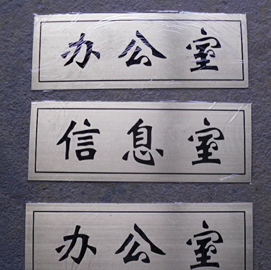 办公室
信息室
办公室